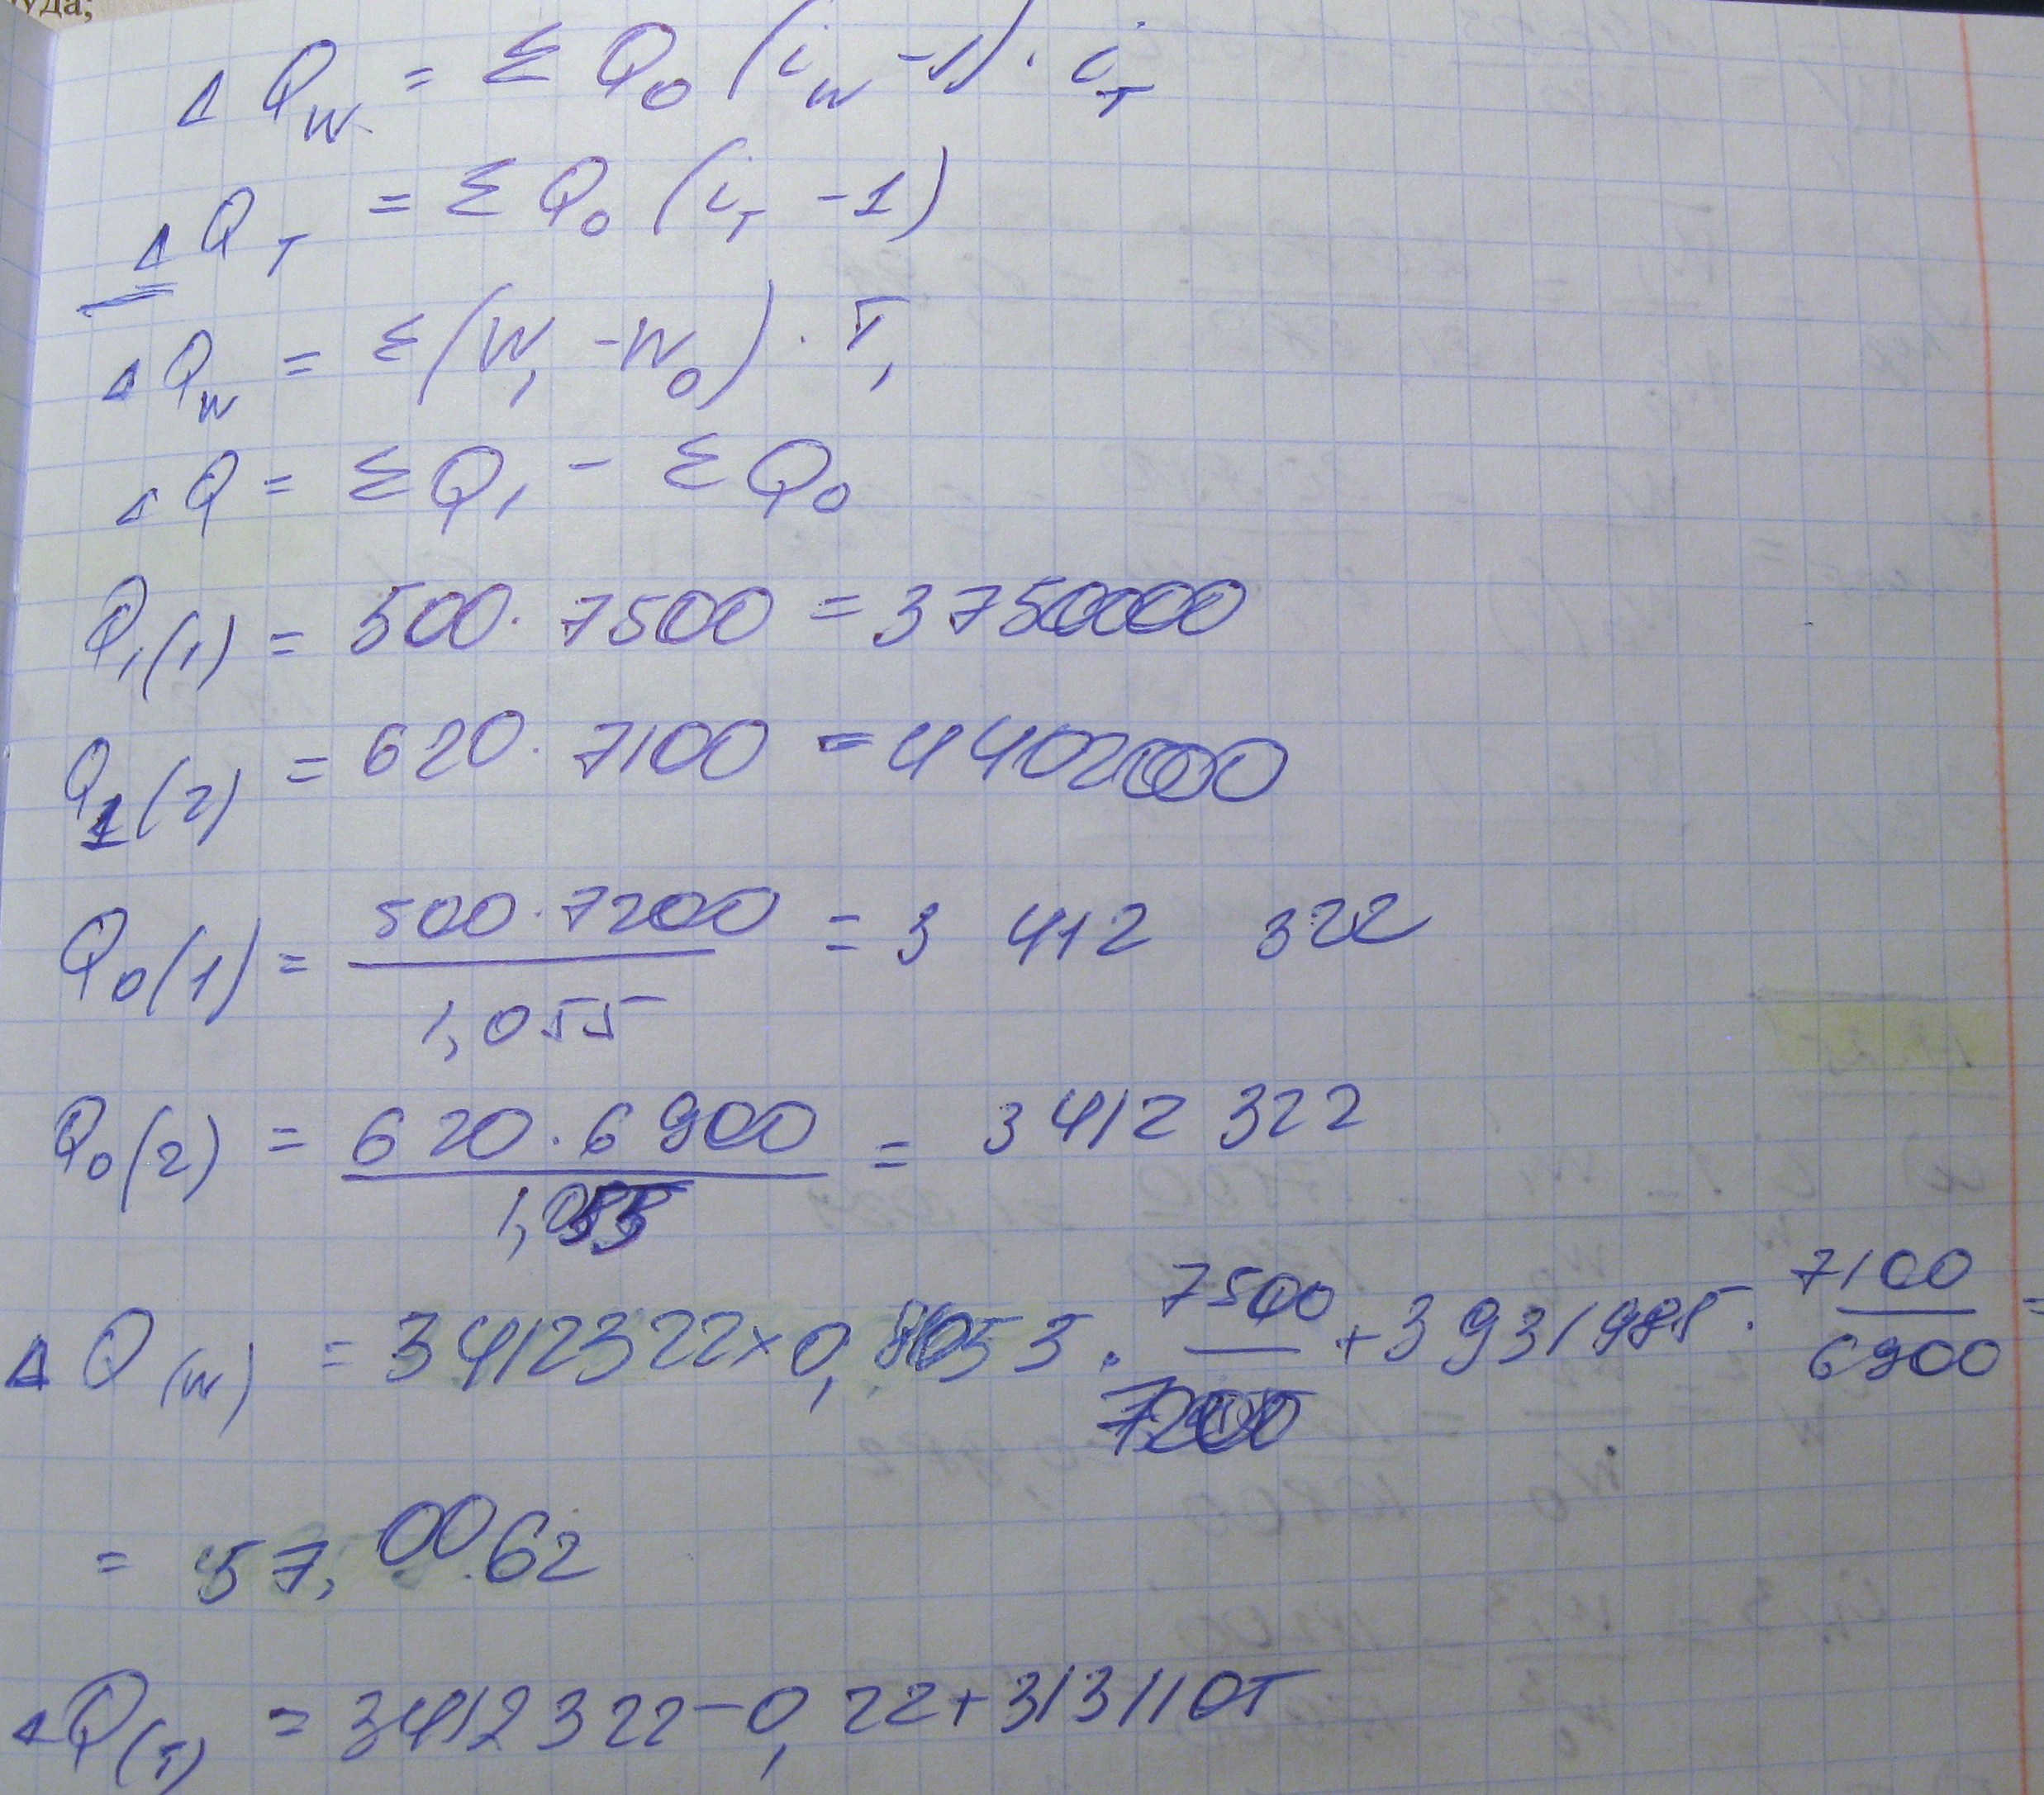 уда;
Δ Q_W = Σ Q_0 (i_W - 1) · i_T
Δ Q_T = Σ Q_0 (i_T - 1)
Δ Q_W = Σ (W_1 - W_0) · T_1
Δ Q = Σ Q_1 - Σ Q_0
Q_1(1) = 500 · 7500 = 3750000
Q_1(2) = 620 · 7100 = 4402000
Q_0(1) = 500 · 7200 / 1,055 = 3 412 322
Q_0(2) = 620 · 6900 / = 3412 322
Δ Q(W) = 3412322 × · 7500 / 7200 + 3931985 · 7100 / 6900 =
= 57,0062
Δ Q(T) = 3412322 - 0,22 + 3131105